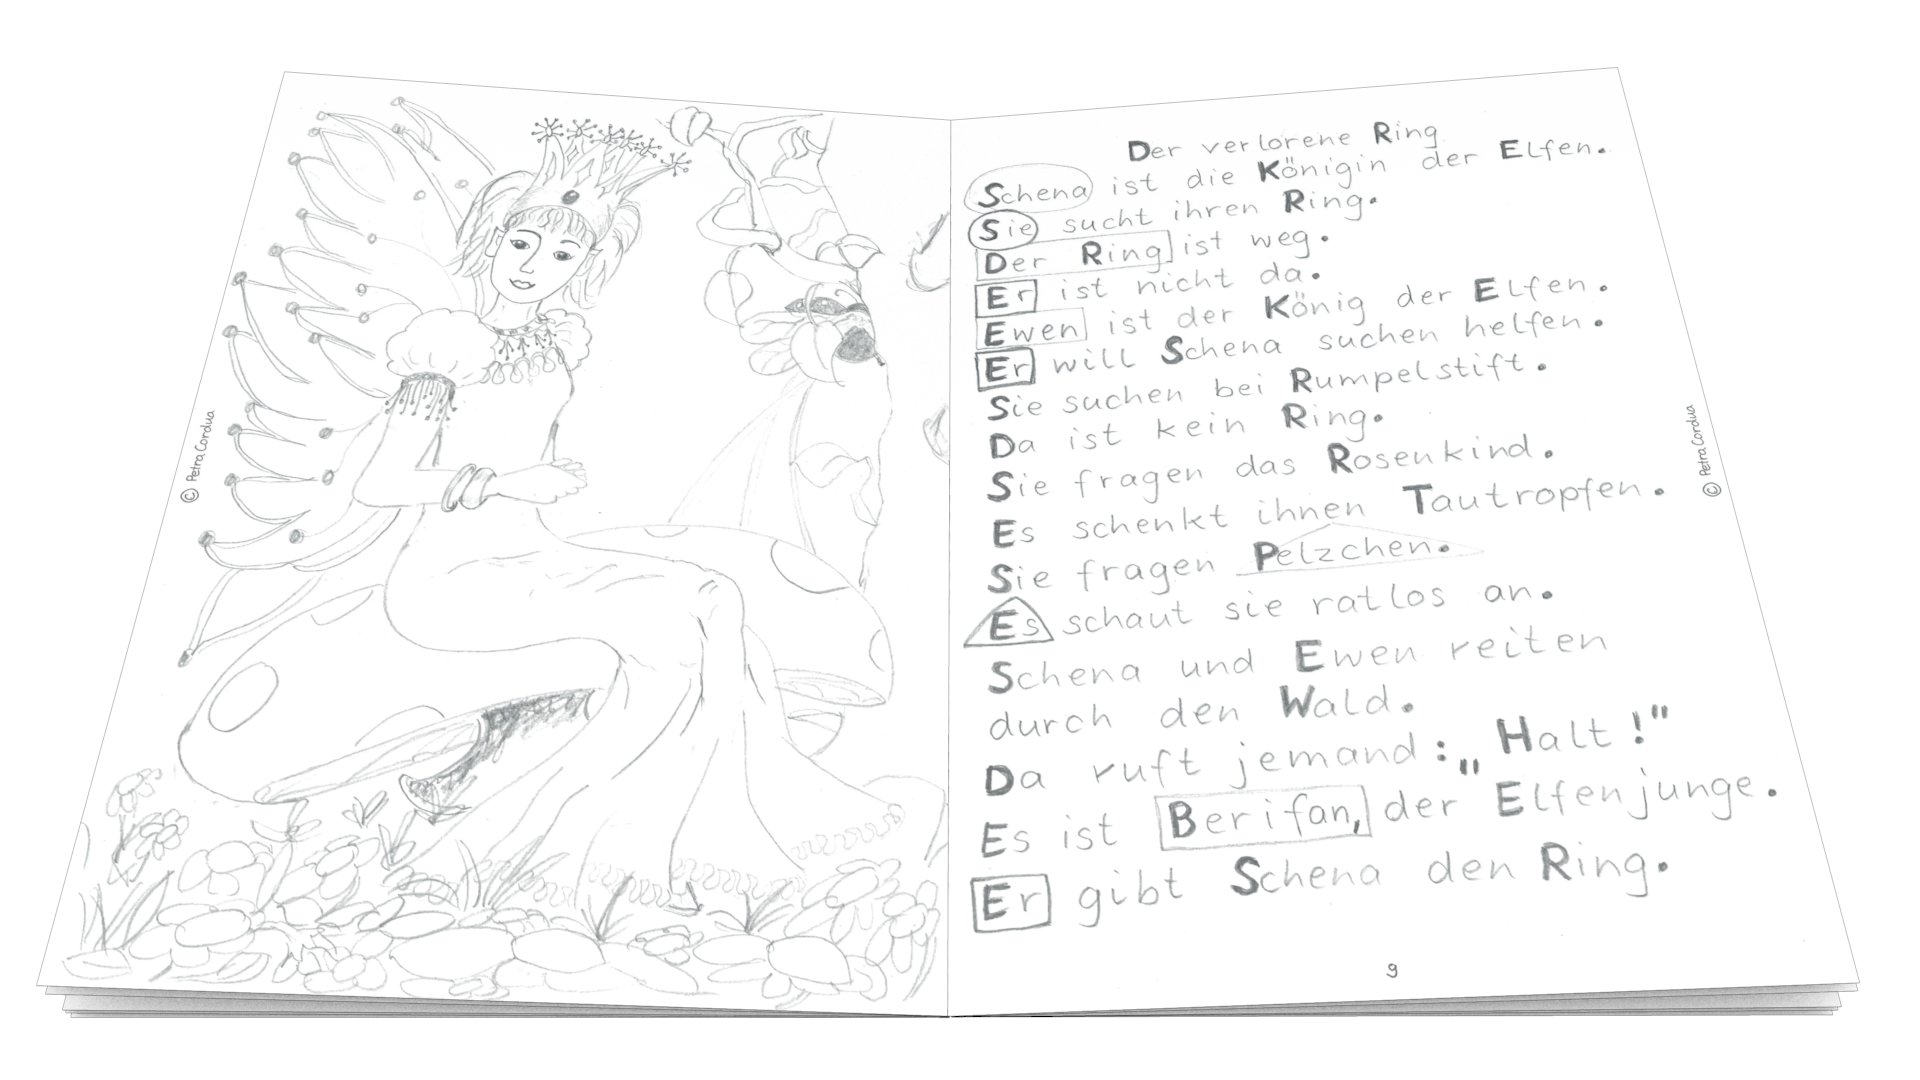 © Petra Cordua
Der verlorene Ring
Schena ist die Königin der Elfen.
Sie sucht ihren Ring.
Der Ring ist weg.
Er ist nicht da.
Ewen ist der König der Elfen.
Er will Schena suchen helfen.
Sie suchen bei Rumpelstift.
Da ist kein Ring.
Sie fragen das Rosenkind.
Es schenkt ihnen Tautropfen.
Sie fragen Pelzchen.
Es schaut sie ratlos an.
Schena und Ewen reiten
durch den Wald.
Da ruft jemand: „Halt!"
Es ist Berifan, der Elfenjunge.
Er gibt Schena den Ring.
9
© Petra Cordua